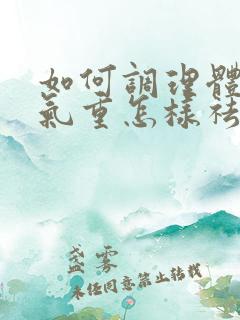 如何調理體
氣重怎樣祛
盛雾
未经同意禁止转载